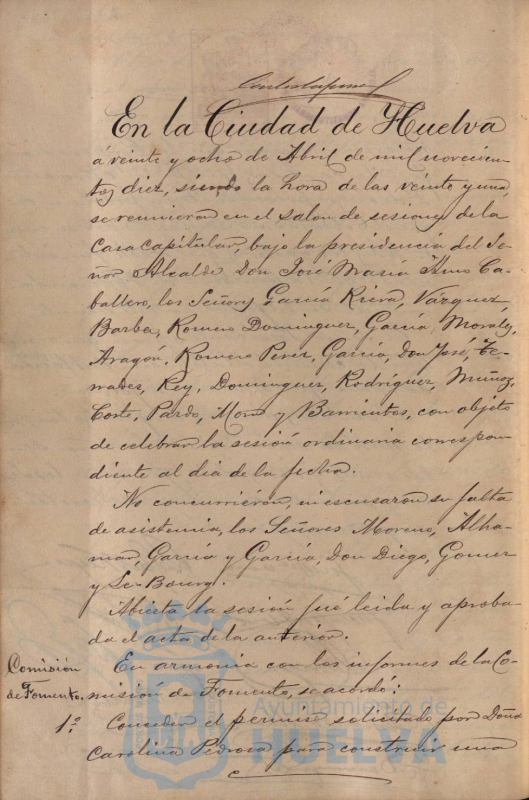 En la Ciudad de Huelva
á veinte y ocho de Abril de mil novecien-
tos diez, siendo la hora de las veinte y una,
se reunieron en el salon de sesiones de la
Casa capitular, bajo la presidencia del Se-
ñor Alcalde Don José Maria Amo Ca-
ballero, los Señores García Riera, Vázquez,
Barba, Romero Dominguez, García, Morales,
Aragón, Romero Perez, García, Don José, Te-
rrades, Rey, Dominguez, Rodríguez, Muñoz,
Corto, Pardo, Mora y Barrientos, con objeto
de celebrar la sesión ordinaria correspon
diente al dia de la fecha.
No concurrieron, ni escusaron su falta
de asistencia, los Señores Moreno, Alha-
mar, García y García, Don Diego, Gomez
y Le-Bourg.
Abierta la sesión fué leida y aproba-
da el acta de la anterior.
Comisión
de Fomento.
En armonía con los informes de la Co-
misión de Fomento, se acordó:
1º
Conceder el permiso solicitado por Doña
Carolina Pedrosa para construir una
Ayuntamiento de
HUELVA